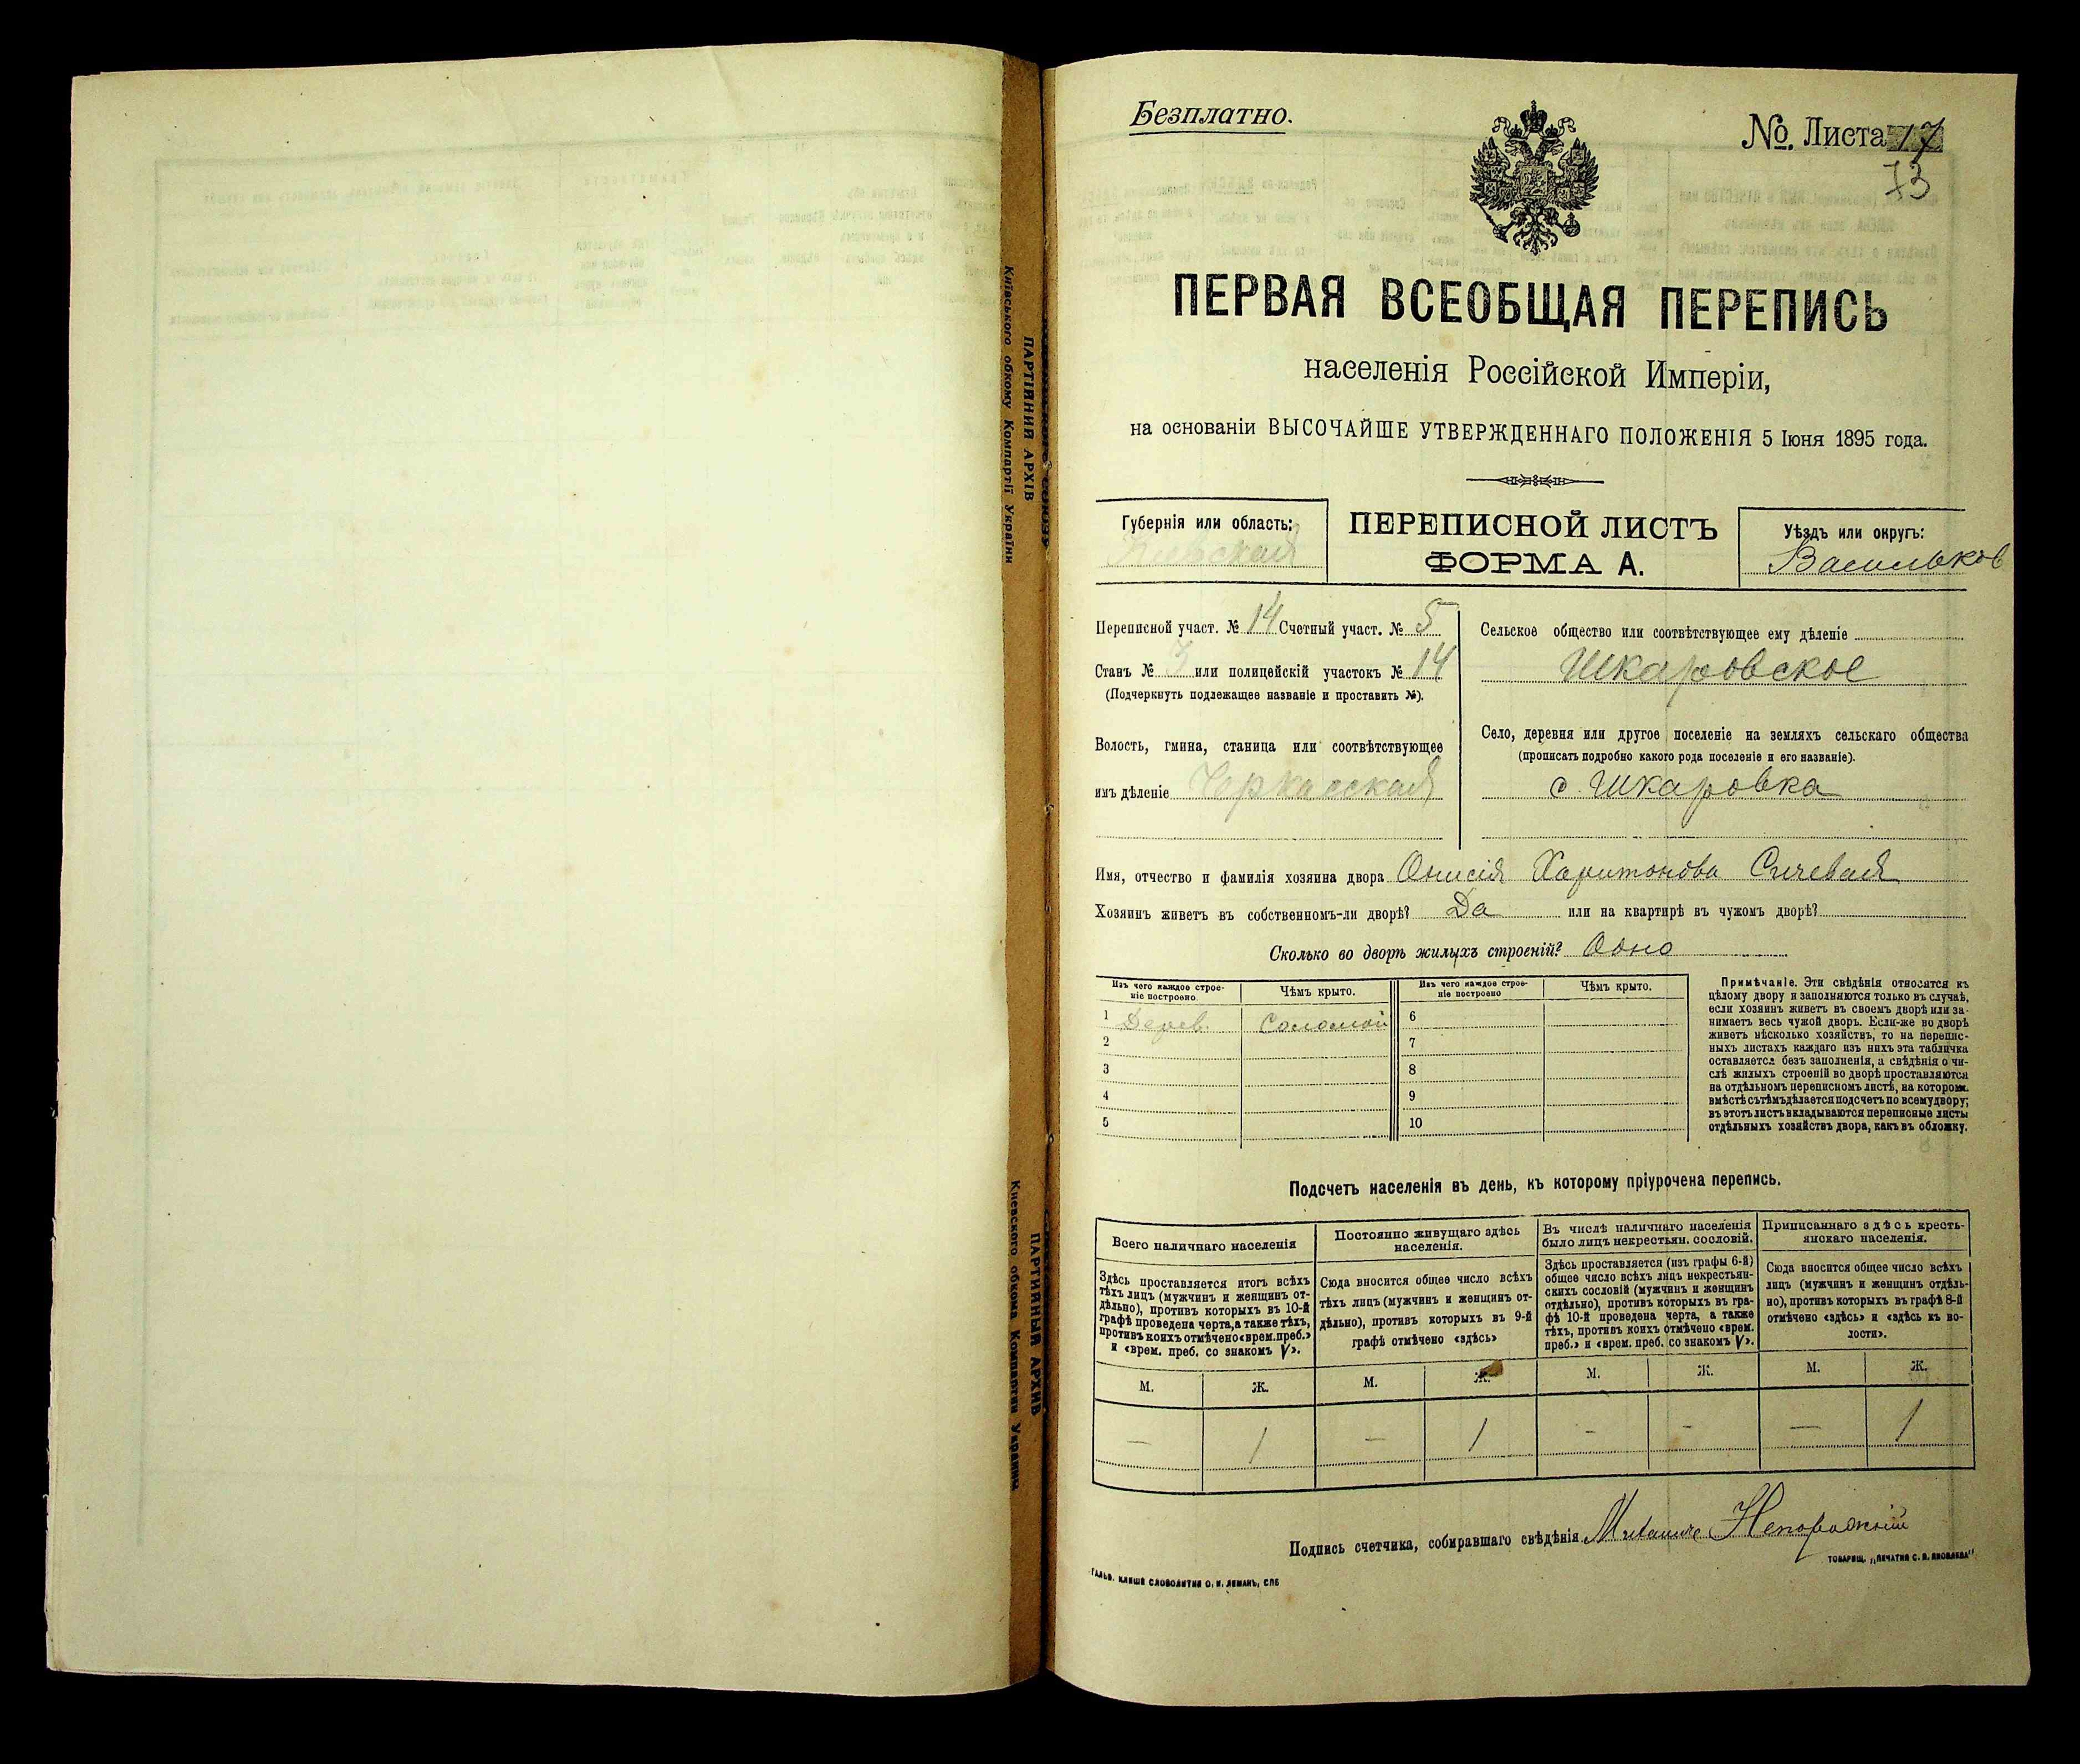 Безплатно.
№. Листа 17
73
ПЕРВАЯ ВСЕОБЩАЯ ПЕРЕПИСЬ
населенія Россійской Имперіи,
на основаніи ВЫСОЧАЙШЕ УТВЕРЖДЕННАГО ПОЛОЖЕНІЯ 5 Іюня 1895 года.
Губернія или область:
Кіевская
ПЕРЕПИСНОЙ ЛИСТЪ
ФОРМА А.
Уѣздъ или округъ:
Васильков
Переписной участ. № 14 Счетный участ. № 5
Станъ № 3 или полицейскій участокъ № 14
(Подчеркнуть подлежащее названіе и проставить №).
Волость, гмина, станица или соотвѣтствующее
имъ дѣленіе Черкасская
Сельское общество или соотвѣтствующее ему дѣленіе
Шкаровское
Село, деревня или другое поселеніе на земляхъ сельскаго общества
(прописать подробно какого рода поселеніе и его названіе).
с. Шкаровка
Имя, отчество и фамилія хозяина двора Онисія Харитонова Сичевая
Хозяинъ живетъ въ собственномъ-ли дворѣ? Да или на квартирѣ въ чужомъ дворѣ?
Сколько во дворѣ жилыхъ строеній? Одно
Изъ чего каждое строе-
ніе построено
Чѣмъ крыто.
Изъ чего каждое строе-
ніе построено
Чѣмъ крыто.
1 Дерев. Соломой 6
2 7
3 8
4 9
5 10
Примѣчаніе. Эти свѣдѣнія относятся къ
цѣлому двору и заполняются только въ случаѣ,
если хозяинъ живетъ въ своемъ дворѣ или за-
нимаетъ весь чужой дворъ. Если-же во дворѣ
живетъ нѣсколько хозяйствъ, то на перепис-
ныхъ листахъ каждаго изъ нихъ эта табличка
оставляется безъ заполненія, а свѣдѣнія о чи-
слѣ жилыхъ строеній во дворѣ проставляются
на отдѣльномъ переписномъ листѣ, на котором.
вмѣстѣ съ тѣмъ дѣлается подсчетъ по всему двору;
въ этотъ листъ вкладываются переписные листы
отдѣльныхъ хозяйствъ двора, какъ въ обложку.
Подсчетъ населенія въ день, къ которому пріурочена перепись.
Всего наличнаго населенія
Постоянно живущаго здѣсь
населенія.
Въ числѣ наличнаго населенія
было лицъ некрестьян. сословій.
Приписаннаго здѣсь кресть-
янскаго населенія.
Здѣсь проставляется итогъ всѣхъ
тѣхъ лицъ (мужчинъ и женщинъ от-
дѣльно), противъ которыхъ въ 10-й
графѣ проведена черта, а также тѣхъ,
противъ коихъ отмѣчено «врем. преб.»
и «врем. преб. со знакомъ V».
Сюда вносится общее число всѣхъ
тѣхъ лицъ (мужчинъ и женщинъ от-
дѣльно), противъ которыхъ въ 9-й
графѣ отмѣчено «здѣсь»
Здѣсь проставляется (изъ графы 6-й)
общее число всѣхъ лицъ некрестьян-
скихъ сословій (мужчинъ и женщинъ
отдѣльно), противъ которыхъ въ гра-
фѣ 10-й проведена черта, а также
тѣхъ, противъ коихъ отмѣчено «врем.
преб.» и «врем. преб. со знакомъ V».
Сюда вносится общее число всѣхъ
лицъ (мужчинъ и женщинъ отдѣль-
но), противъ которыхъ въ графѣ 8-й
отмѣчено «здѣсь» и «здѣсь къ во-
лости».
М. Ж. М. Ж. М. Ж. М. Ж.
— 1 — 1 - - — 1
Подпись счетчика, собиравшаго свѣдѣнія Непорожній
ТОВАРИЩ. „ПЕЧАТНЯ С. П. ЯКОВЛЕВА"
ГАЛЬВ. КЛИШЕ СЛОВОЛИТНИ О. И. ЛЕМАНЪ, СПБ
ПАРТІЙНИЙ АРХІВ
Київського обкому Компартії України
ПАРТИЙНЫЙ АРХИВ
Киевского обкома Компартии Украины